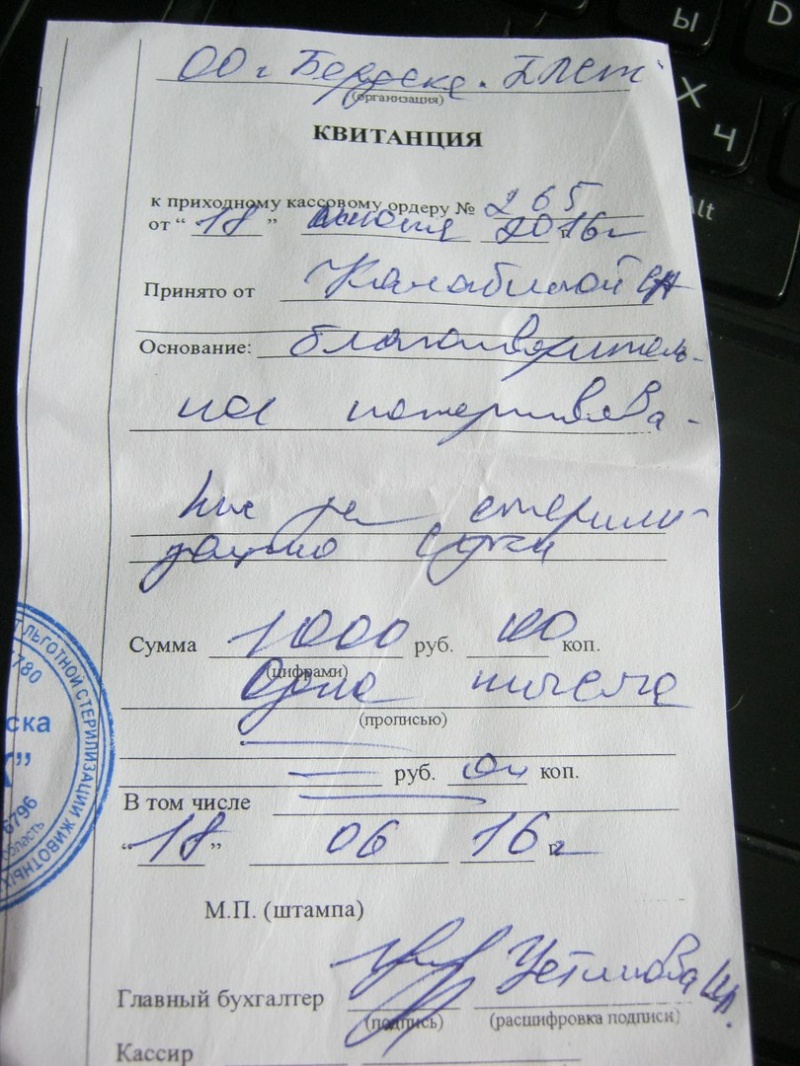 ОО г Бердска
(организация)
КВИТАНЦИЯ
к приходному кассовому ордеру № 265
от “18” июня 2016г
Принято от
Основание: благотворитель-
ное пожертвова-
ние на стерили-
зацию суки
Сумма 1000 руб. 00 коп.
(цифрами)
Одна тысяча
(прописью)
руб. 00 коп.
В том числе
“18” 06 16 г
М.П. (штампа)
Главный бухгалтер
(подпись) (расшифровка подписи)
Кассир
ЛЬГОТНОЙ СТЕРИЛИЗАЦИИ ЖИВОТНЫХ
780
ска
6796
область
Ы
D
Х
Ч
Alt